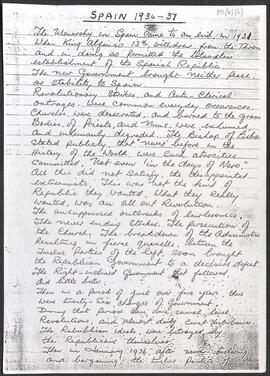 SPAIN 1936-37
The Monarchy in Spain came to an end in 1931
When King Alfonso 13th withdrew from the Throne
and in doing so permitted the bloodless
establishment of the Spanish Republic.
The new Government brought neither peace
or Stability to Spain.
Revolutionary Strikes, and Anti-Clerical
outrages. Were Common everyday occurances.
Churches were desecrated, and burned to the ground
Bodies of Priests and Nuns, were exhumed
and inhumanly degraded. The Bishop of
Stated publicly, that "never before in the
History of the World were Such atrocities
Committed, Not even in the days of Nero"
All this did not Satisfy the disappointed
extremists. This was not the kind of
Republic they wanted. What they Really
wanted, was an all out Revolution.
The unsuppressed outbreaks of lawlessness,
The never ending Strikes, The persecution of
the Church, The breakdown of the Administration
Resulting in fierce quarrels, between the
various Parties of the left, Soon brought
the Republican Government to a decisive defeat.
The Right-inclined Government that followed
did little better.
Then in a period of just over five years, there
were twenty-six changes of Government.
During that period
Revolutions, and almost daily
The Republican ideals were betrayed by
the Republicans themselves.
Then in January 1936, after much
and bargaining, the various Parties of